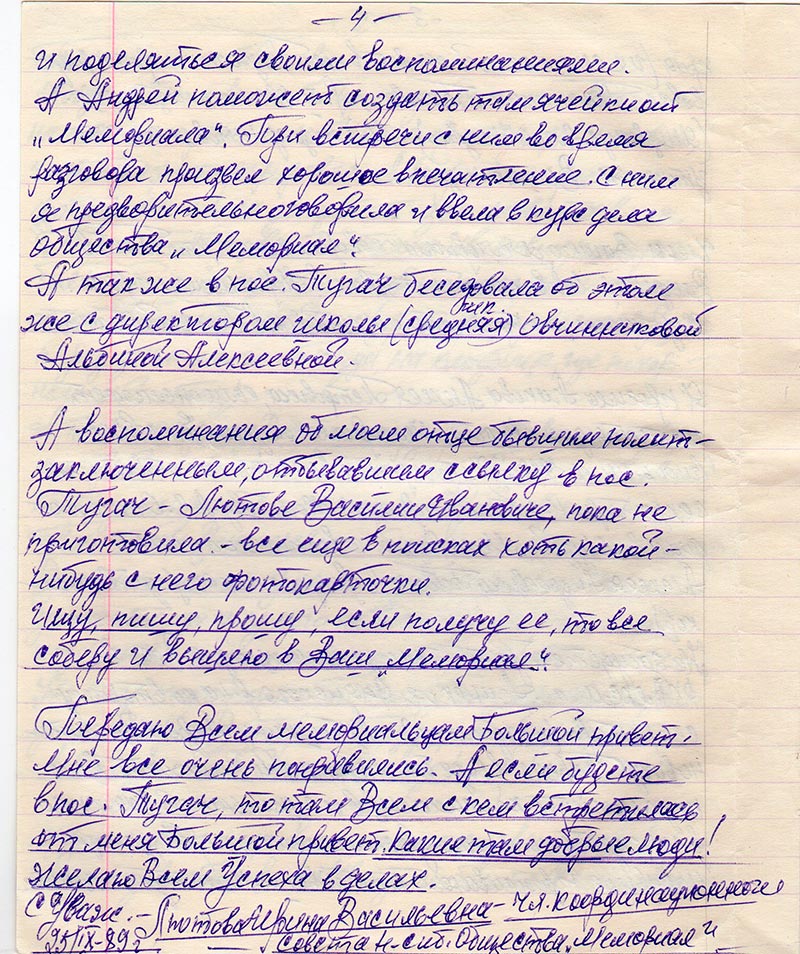 — 4 —
и поделяться своими воспоминаниями.
А Андрей поможет создать там ячейкиот
„Мемориала“. При встречи с ним во время
разговора произвел хорошое впечатление. С ним
я предворительно говорила и ввела в курс дела
общества „Мемориал“.
А так же в пос. Тугач беседовала об этом
же с директором школы (средняя) Овчинниковой
Альбиной Алексеевной.
А воспоминания об моем отце бывшим полит-
заключенным, отбывавшем ссылку в пос.
Тугач – Лютове Василии Ивановиче, пока не
приготовила. – все еще в поисках хоть какой-
нибудь с него фотокарточки.
Ищу, пишу, прошу, если получу ее, то все
соберу и вышлю в Ваш „Мемориал“.
Передаю Всем мемориальцам Большой привет.
Мне все очень понравились. А если будете
в пос. Тугач, то там Всем с кем встретилась
от меня Большой привет. Какие там добрые люди!
Желаю Всем Успеха в делах.
С Уваж. – Лютова Ирина Васильевна – чл. координационного
25/IX-89 г. совета Н-сиб. Общества „Мемориал“